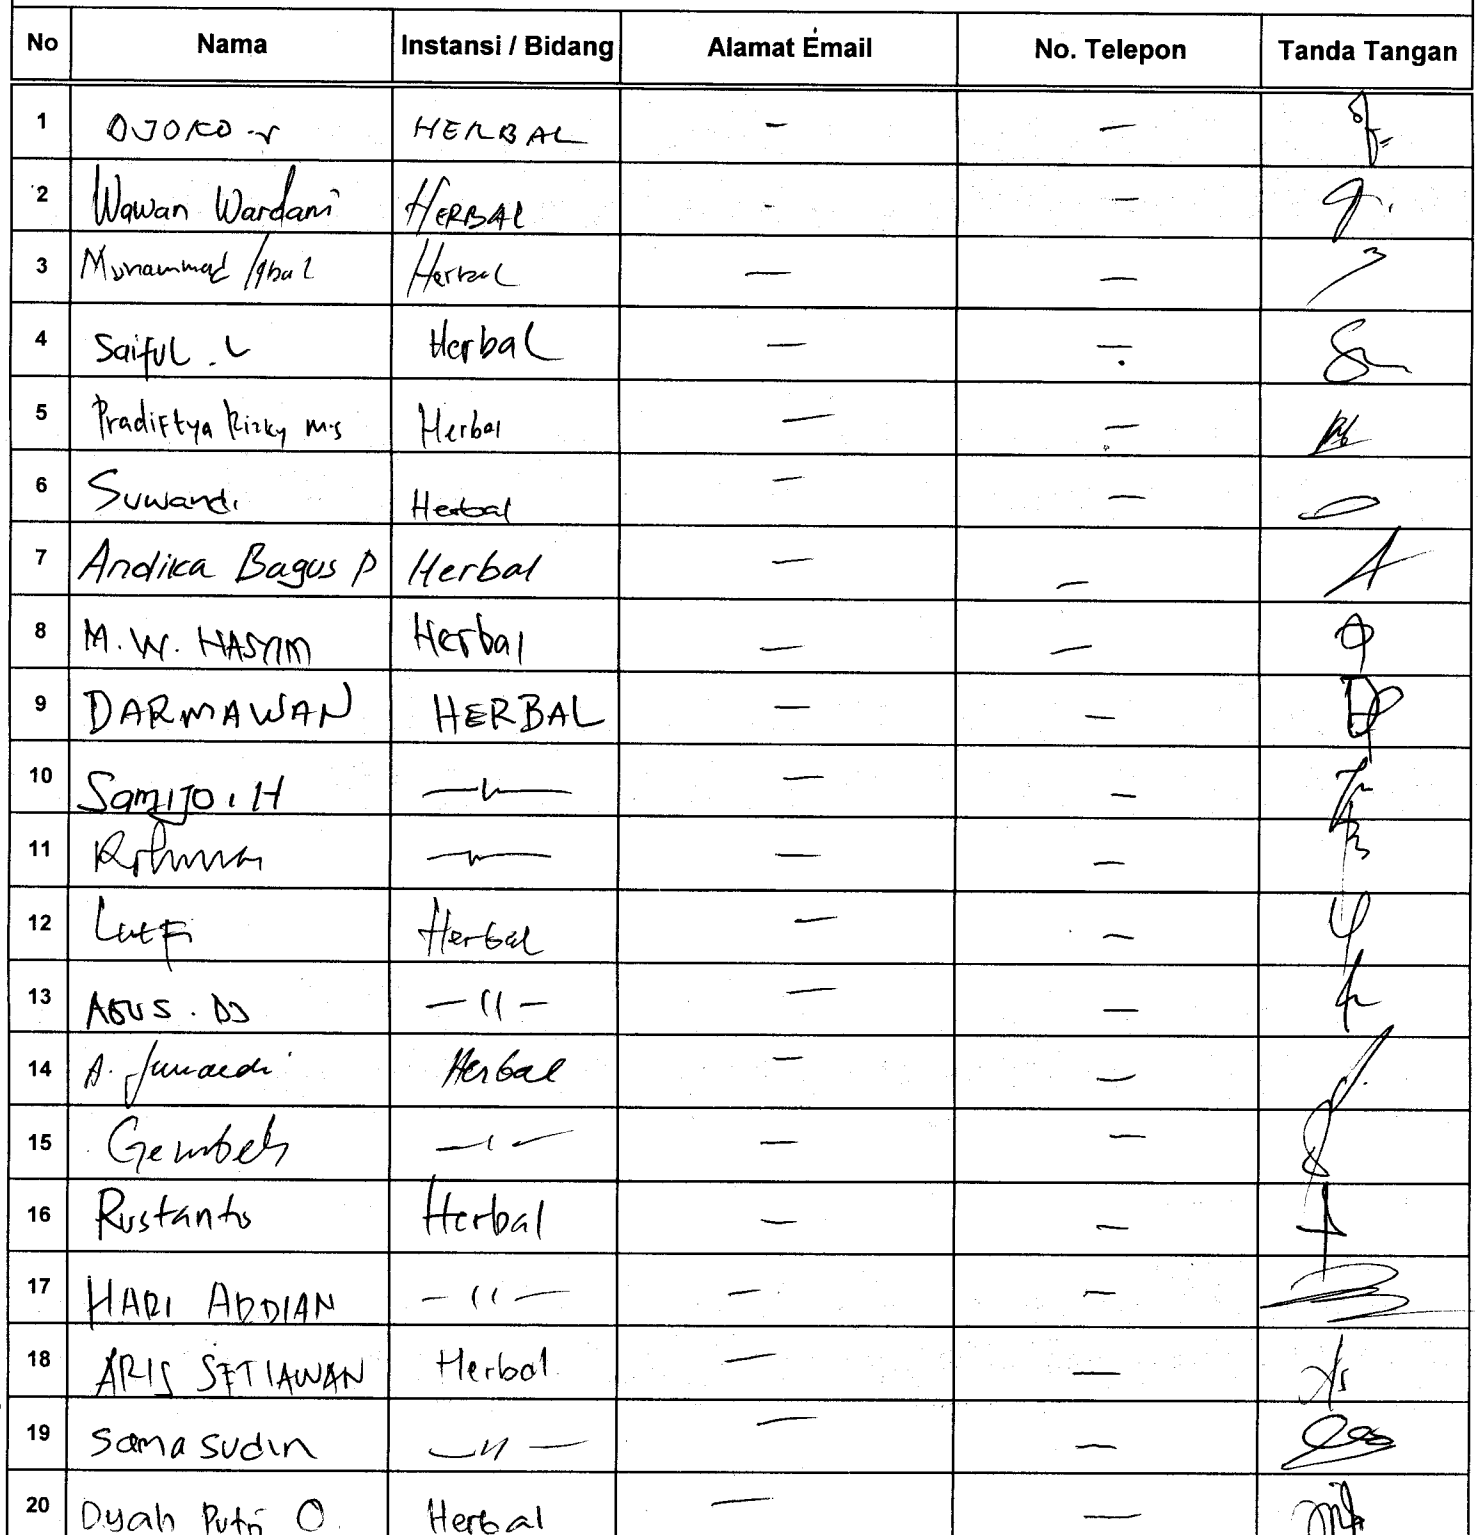 No Nama Instansi / Bidang Alamat Email No. Telepon Tanda Tangan
1 DJOKO HERBAL - -
2 Wawan Wardani HERBAL - -
3 Muhammad Iqbal Herbal - -
4 Saiful . L Herbal - -
5 Pradiftya Rizky M.S Herbal - -
6 Suwandi Herbal - -
7 Andika Bagus P Herbal - -
8 M. W. HASYIM Herbal - -
9 DARMAWAN HERBAL - -
10 Samijo . H - -
11 - -
12 Lutfi Herbal - -
13 AGUS . DJ - 11 - - -
14 A. Junaedi Herbal - -
15 Gembeh - -
16 Rustanto Herbal - -
17 HARI ARDIAN - 11 - - -
18 ARIS SETIAWAN Herbal - -
19 Samasudin - 11 - - -
20 Dyah Putri O. Herbal - -